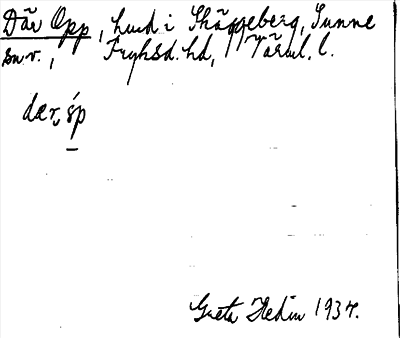 Där Opp, hmd i Skäggeberg, Sunne
sn.v., Fryksd. hd, Värml. l.
dær, ɷ́p
Greta Hedin 1937.